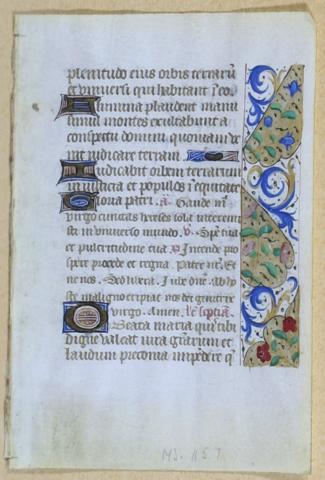 plenitudo eius orbis terrarũ
et universi qui habitant ĩ eo
Flumina plaudent manu
simul montes exultabunt a
conspectu domini quoniam ve
nit iudicare terram
Iudicabit orbem terrarum
in iusticia et populos ĩ equitate
Gloria patri. a. Gaude m̃
virgo cunctas hereses sola interemi
ste in universo mundo. v. Specie tua
et pulcritudine tua Intende pro
spere procede et regna. Pater nr̃. Et
ne nos. Sed libera.
ste maligno eripiat nos dei genitrix
virgo. Amen.
O Beata maria quis tibi
digne valeat iura gratiarum et
laudum preconia impẽdere q
MS. 1157